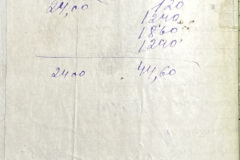 24,00 120
1240
1860
1290
2400 44,60